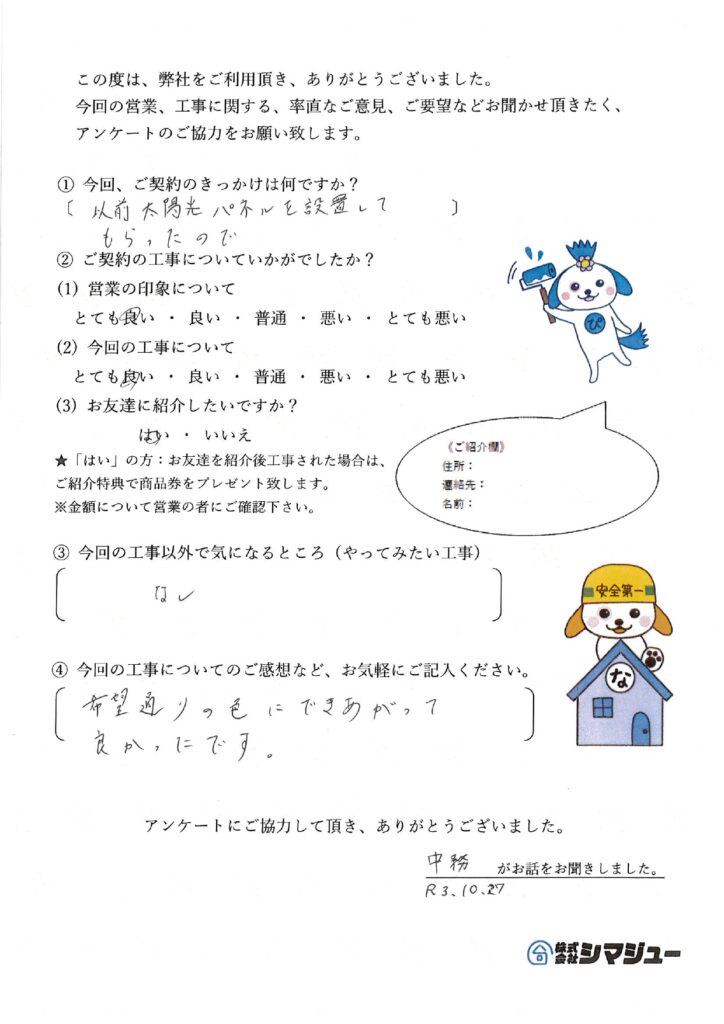 この度は、弊社をご利用頂き、ありがとうございました。
今回の営業、工事に関する、率直なご意見、ご要望などお聞かせ頂きたく、
アンケートのご協力をお願い致します。
① 今回、ご契約のきっかけは何ですか？
〔 以前太陽光パネルを設置して 〕
もらったので
② ご契約の工事についていかがでしたか？
(1) 営業の印象について
とても良い ・ 良い ・ 普通 ・ 悪い ・ とても悪い
(2) 今回の工事について
とても良い ・ 良い ・ 普通 ・ 悪い ・ とても悪い
(3) お友達に紹介したいですか？
はい ・ いいえ
★「はい」の方：お友達を紹介後工事された場合は、
ご紹介特典で商品券をプレゼント致します。
※金額について営業の者にご確認下さい。
ぴ
《ご紹介欄》
住所：
連絡先：
名前：
③ 今回の工事以外で気になるところ（やってみたい工事）
なし
安全第一
な
④ 今回の工事についてのご感想など、お気軽にご記入ください。
希望通りの色にできあがって
良かったです。
アンケートにご協力して頂き、ありがとうございました。
中務 がお話をお聞きしました。
R3.10.27
株式会社シマジュー